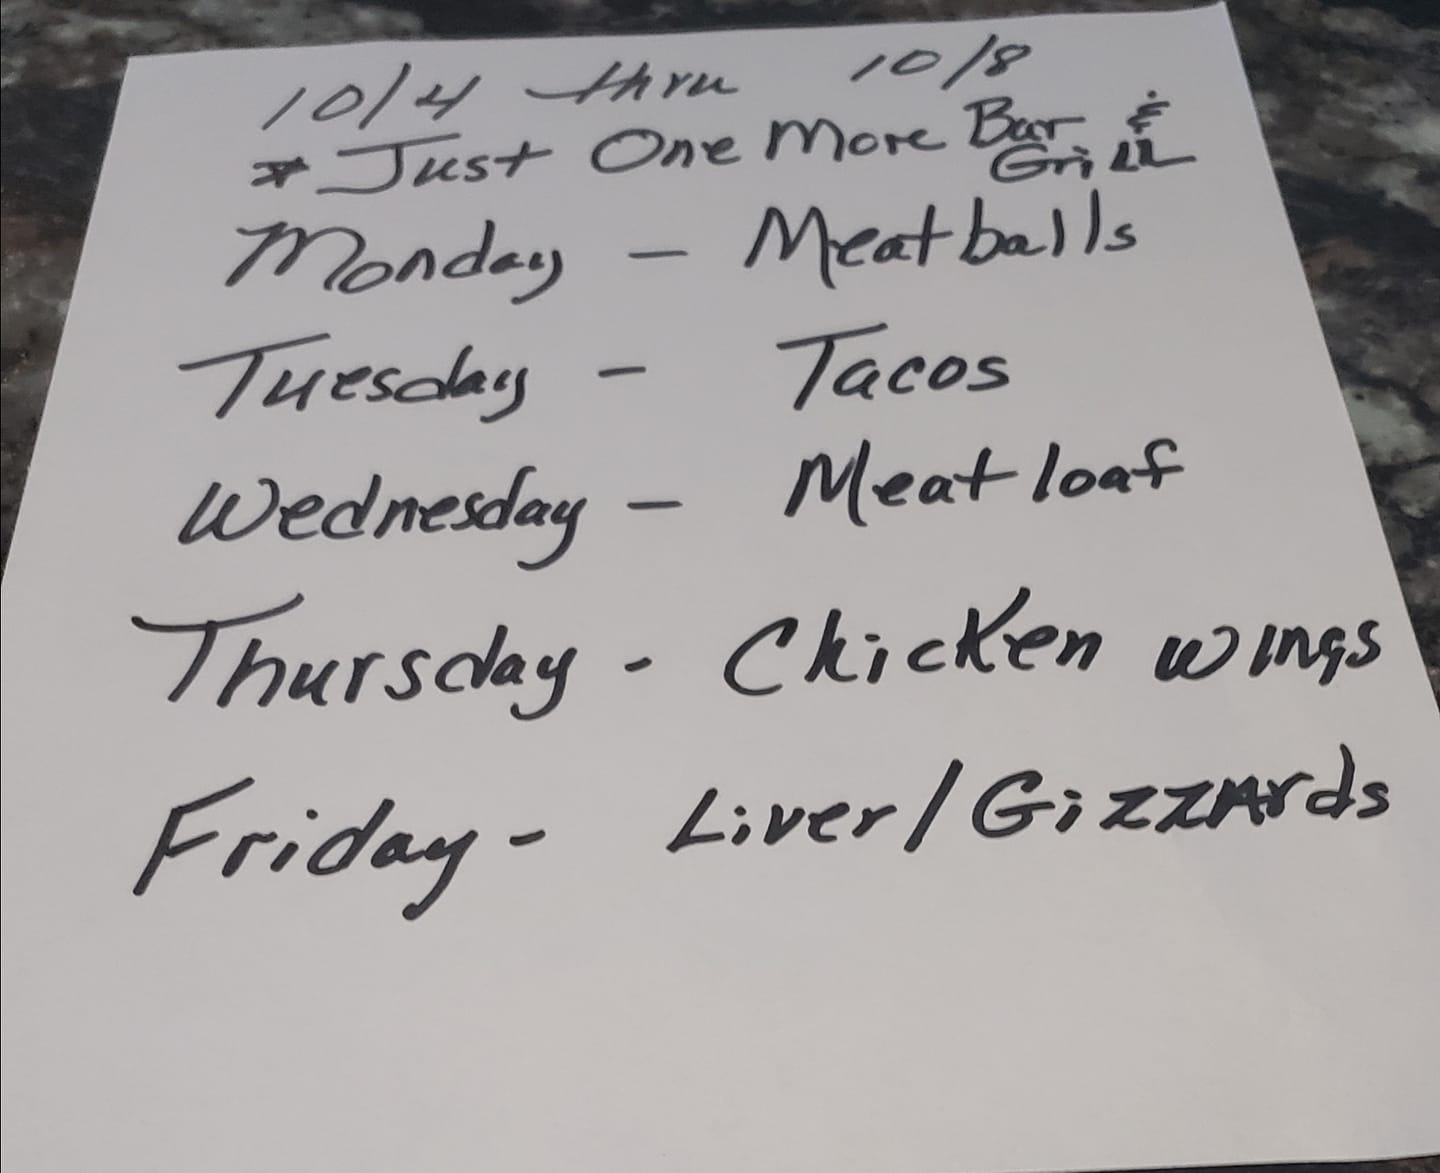 10/4 thru 10/8
* Just One More Bar &
Grill
Monday - Meatballs
Tuesday - Tacos
Wednesday - Meatloaf
Thursday - Chicken wings
Friday - Liver/Gizzards